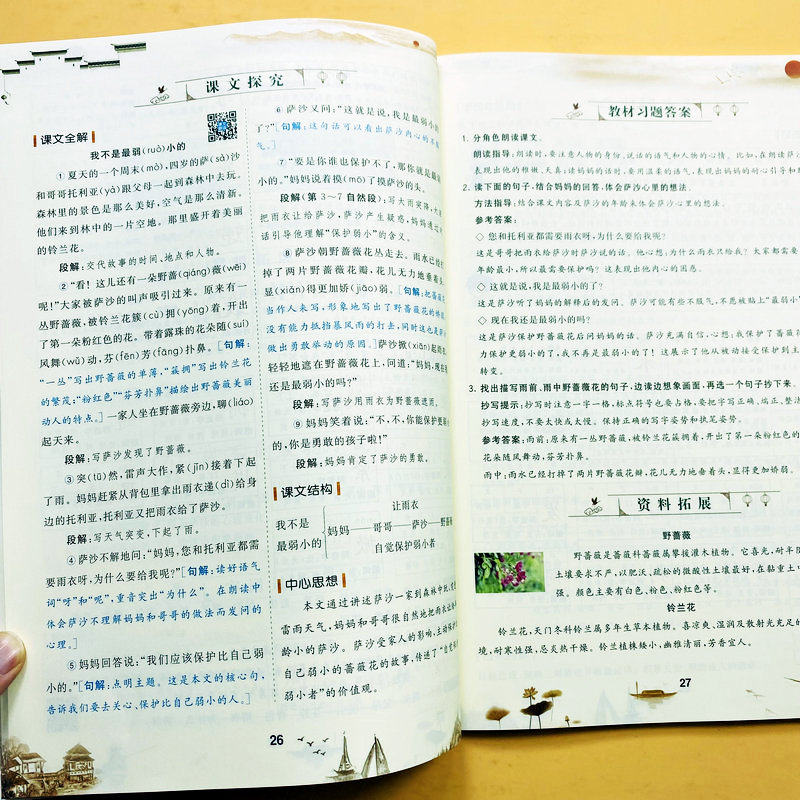 课文探究
课文全解
我不是最弱(ruò)小的
①夏天的一个周末(mò)，四岁的萨(sà)沙
和哥哥托利亚(yà)跟父母一起到森林中去玩。
森林里的景色是那么美好，空气是那么清新。
他们来到林中的一片空地。那里盛开着美丽
的铃兰花。
段解:交代故事的时间、地点和人物。
②“看！这儿还有一朵野蔷(qiáng)薇(wēi)
呢！”大家被萨沙的叫声吸引过来。原来有一
丛野蔷薇，被铃兰花簇(cù)拥(yōng)着，开出
了第一朵粉红色的花。带着露珠的花朵随(suí)
风舞(wǔ)动，芬(fēn)芳(fāng)扑鼻。[句解:
“一丛”写出野蔷薇的单薄，“簇拥”写出铃兰花
的繁茂；“粉红色”“芬芳扑鼻”描绘出野蔷薇美丽
动人的特点。]一家人坐在野蔷薇旁边，聊(liáo)
起天来。
段解:写萨沙发现了野蔷薇。
③突(tū)然，雷声大作，紧(jǐn)接着下起
了雨。妈妈赶紧从背包里拿出雨衣递(dì)给身
边的托利亚，托利亚又把雨衣给了萨沙。
段解:写天气突变，下起了雨。
④萨沙不解地问:“妈妈，您和托利亚都需
要雨衣呀，为什么要给我呢？”[句解:读好语气
词“呀”和“呢”，重音突出“为什么”。在朗读中
体会萨沙不理解妈妈和哥哥的做法而发问的
心理。]
⑤妈妈回答说:“我们应该保护比自己弱
小的。”[句解:点明主题。这是本文的核心句，
告诉我们要去关心、保护比自己弱小的人。]
⑥萨沙又问:“这就是说，我是最弱小的
了？”[句解:这句话可以看出萨沙内心的不服
气。]
⑦“要是你谁也保护不了，那你就是最弱
小的。”妈妈说着摸(mō)了摸萨沙的头。
段解(第3～7自然段):写大雨突降，大家
把雨衣让给萨沙，萨沙产生疑惑，妈妈通过对
话引导他理解“保护弱小”的含义。
⑧萨沙朝野蔷薇花丛走去。雨水已经打
掉了两片野蔷薇花瓣，花儿无力地垂着头，
显(xiǎn)得更加娇(jiāo)弱。[句解:把蔷薇花
当作人来写，形象地写出了野蔷薇花的娇弱，
没有能力抵挡暴风雨的打击，同时这也是萨沙
做出勇敢举动的原因。]萨沙掀(xiān)起雨衣，
轻轻地遮在野蔷薇花上，问道:“妈妈，现在我
还是最弱小的吗？”
段解:写萨沙用雨衣为野蔷薇遮雨。
⑨妈妈笑着说:“不，不，你能保护更弱小
的，你是勇敢的孩子啦！”
段解:妈妈肯定了萨沙的勇敢。
课文结构
让雨衣
我不是
最弱小的
妈妈——哥哥——萨沙——野蔷薇
自觉保护弱小者
中心思想
本文通过讲述萨沙一家到森林中玩，
雷雨天气，妈妈和哥哥很自然地把雨衣让给年
龄小的萨沙。萨沙受家人的影响，主动保护比
自己弱小的蔷薇花的故事，传递了“自觉保护
弱小者”的价值观。
26
教材习题答案
1. 分角色朗读课文。
朗读指导:朗读时，要注意人物的身份、说话的语气和人物的心情。比如，在朗读萨沙
表现出他的稚嫩、天真；读妈妈的话时，要用温柔的语气，表现出妈妈的耐心引导和
2. 读下面的句子，结合妈妈的回答，体会萨沙心里的想法。
方法指导:结合课文内容及萨沙的年龄来体会萨沙心里的想法。
参考答案:
◇ 您和托利亚都需要雨衣呀，为什么要给我呢？
这是哥哥把雨衣给萨沙时萨沙说的话。他心想:为什么雨衣只给我？大家都需要
年龄最小，所以最需要保护吗？这表现出他内心的困惑。
◇ 这就是说，我是最弱小的了？
这是萨沙听了妈妈的解释后的发问。萨沙可能有些不服气，不愿被贴上“最弱小”
◇ 现在我还是最弱小的吗？
这是萨沙保护野蔷薇花后问妈妈的话。萨沙充满自信，心想:我保护了蔷薇
力保护更弱小的了，我不再是最弱小的了！这展示了他从被动接受保护到主
转变。
3. 找出描写雨前、雨中野蔷薇花的句子，边读边想象画面，再选一个句子抄下来。
抄写提示:抄写时注意一字一格，标点符号也要占格，要把字写正确、端正、整洁
抄写速度，不要太快或太慢。保持正确的写字姿势和执笔姿势。
参考答案:雨前:原来有一丛野蔷薇，被铃兰花簇拥着，开出了第一朵粉红色的
花朵随风舞动，芬芳扑鼻。
雨中:雨水已经打掉了两片野蔷薇花瓣，花儿无力地垂着头，显得更加娇弱。
资料拓展
野蔷薇
野蔷薇是蔷薇科蔷薇属攀援灌木植物。它喜光，耐半阴
土壤要求不严，以肥沃、疏松的微酸性土壤最好，在黏重土
强。颜色主要有白色、粉色、粉红色等。
铃兰花
铃兰花，天门冬科铃兰属多年生草本植物。喜凉爽、湿润及散射光充足的
境，耐寒性强，忌炎热干燥。铃兰植株矮小，幽雅清丽，芳香宜人。
27